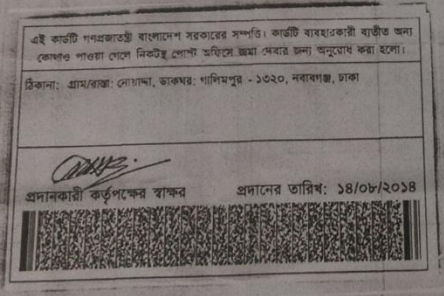 এই কার্ডটি গণপ্রজাতন্ত্রী বাংলাদেশ সরকারের সম্পত্তি। কার্ডটি ব্যবহারকারী ব্যতীত অন্য
কোথাও পাওয়া গেলে নিকটস্থ পোস্ট অফিসে জমা দেবার জন্য অনুরোধ করা হলো।
ঠিকানা: গ্রাম/রাস্তা: নোয়াদ্দা, ডাকঘর: গালিমপুর - ১৩২০, নবাবগঞ্জ, ঢাকা
প্রদানকারী কর্তৃপক্ষের স্বাক্ষর প্রদানের তারিখ: ১৪/০৮/২০১৪